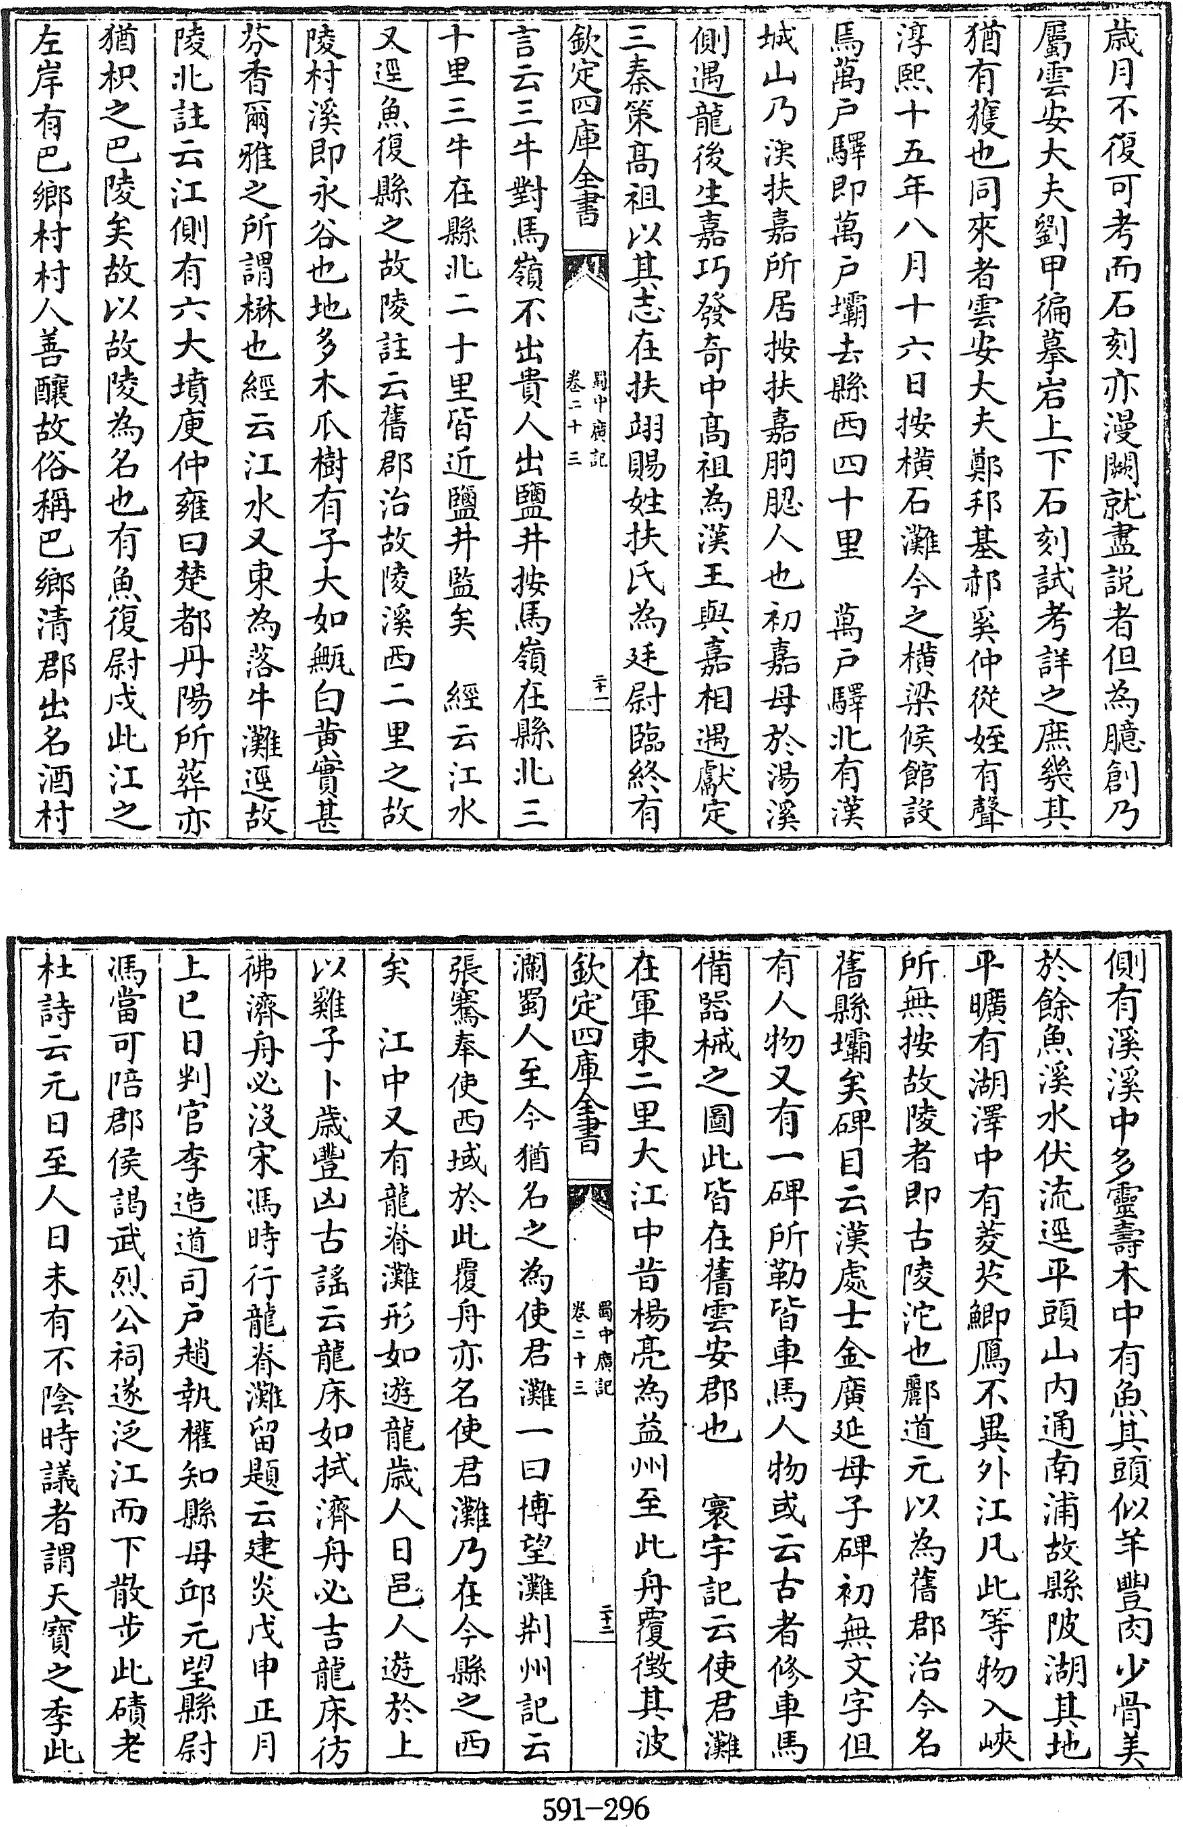 歲月不復可考而石刻亦漫闕就盡説者但為臆創乃
屬雲安大夫劉甲徧摹岩上下石刻試考詳之庶幾其
猶有獲也同來者雲安大夫鄭邦基郝奚仲從姪有聲
淳熙十五年八月十六日按横石灘今之横梁候館設
焉萬户驛即萬户壩去縣西四十里　萬户驛北有漢
城山乃漢扶嘉所居按扶嘉朐䏰人也初嘉母於湯溪
側遇龍後生嘉巧發奇中髙祖為漢王與嘉相遇獻定
三秦策髙祖以其志在扶翊賜姓扶氏為廷尉臨終有
欽定四庫全書
蜀中廣記
卷二十三
二十一
言云三牛對馬嶺不出貴人出鹽井按馬嶺在縣北三
十里三牛在縣北二十里皆近鹽井監矣　經云江水
又逕魚復縣之故陵註云舊郡治故陵溪西二里之故
陵村溪即永谷也地多木瓜樹有子大如甒白黄實甚
芬香爾雅之所謂楙也經云江水又東為落牛灘逕故
陵北註云江側有六大墳庾仲雍曰楚都丹陽所葬亦
猶枳之巴陵矣故以故陵為名也有魚復尉戍此江之
左岸有巴鄉村村人善釀故俗稱巴鄉清郡出名酒村
側有溪溪中多靈壽木中有魚其頭似羊豐肉少骨美
於餘魚溪水伏流逕平頭山内通南浦故縣陂湖其地
平曠有湖澤中有菱芡鯽鴈不異外江凡此等物入峽
所無按故陵者即古陵沱也酈道元以為舊郡治今名
舊縣壩矣碑目云漢處士金廣延母子碑初無文字但
有人物又有一碑所勒皆車馬人物或云古者修車馬
備器械之圖此皆在舊雲安郡也　寰宇記云使君灘
在軍東二里大江中昔楊亮為益州至此舟覆徵其波
欽定四庫全書
蜀中廣記
卷二十三
二十二
瀾蜀人至今猶名之為使君灘一曰博望灘荆州記云
張騫奉使西域於此覆舟亦名使君灘乃在今縣之西
矣　江中又有龍脊灘形如遊龍歲人日邑人遊於上
以雞子卜歲豐凶古謡云龍床如拭濟舟必吉龍床彷
彿濟舟必没宋馮時行龍脊灘留題云建炎戊申正月
上巳日判官李造道司户趙執權知縣毋邱元望縣尉
馮當可陪郡侯謁武烈公祠遂泛江而下散步此磧老
杜詩云元日至人日未有不陰時議者謂天寶之季此
591-296